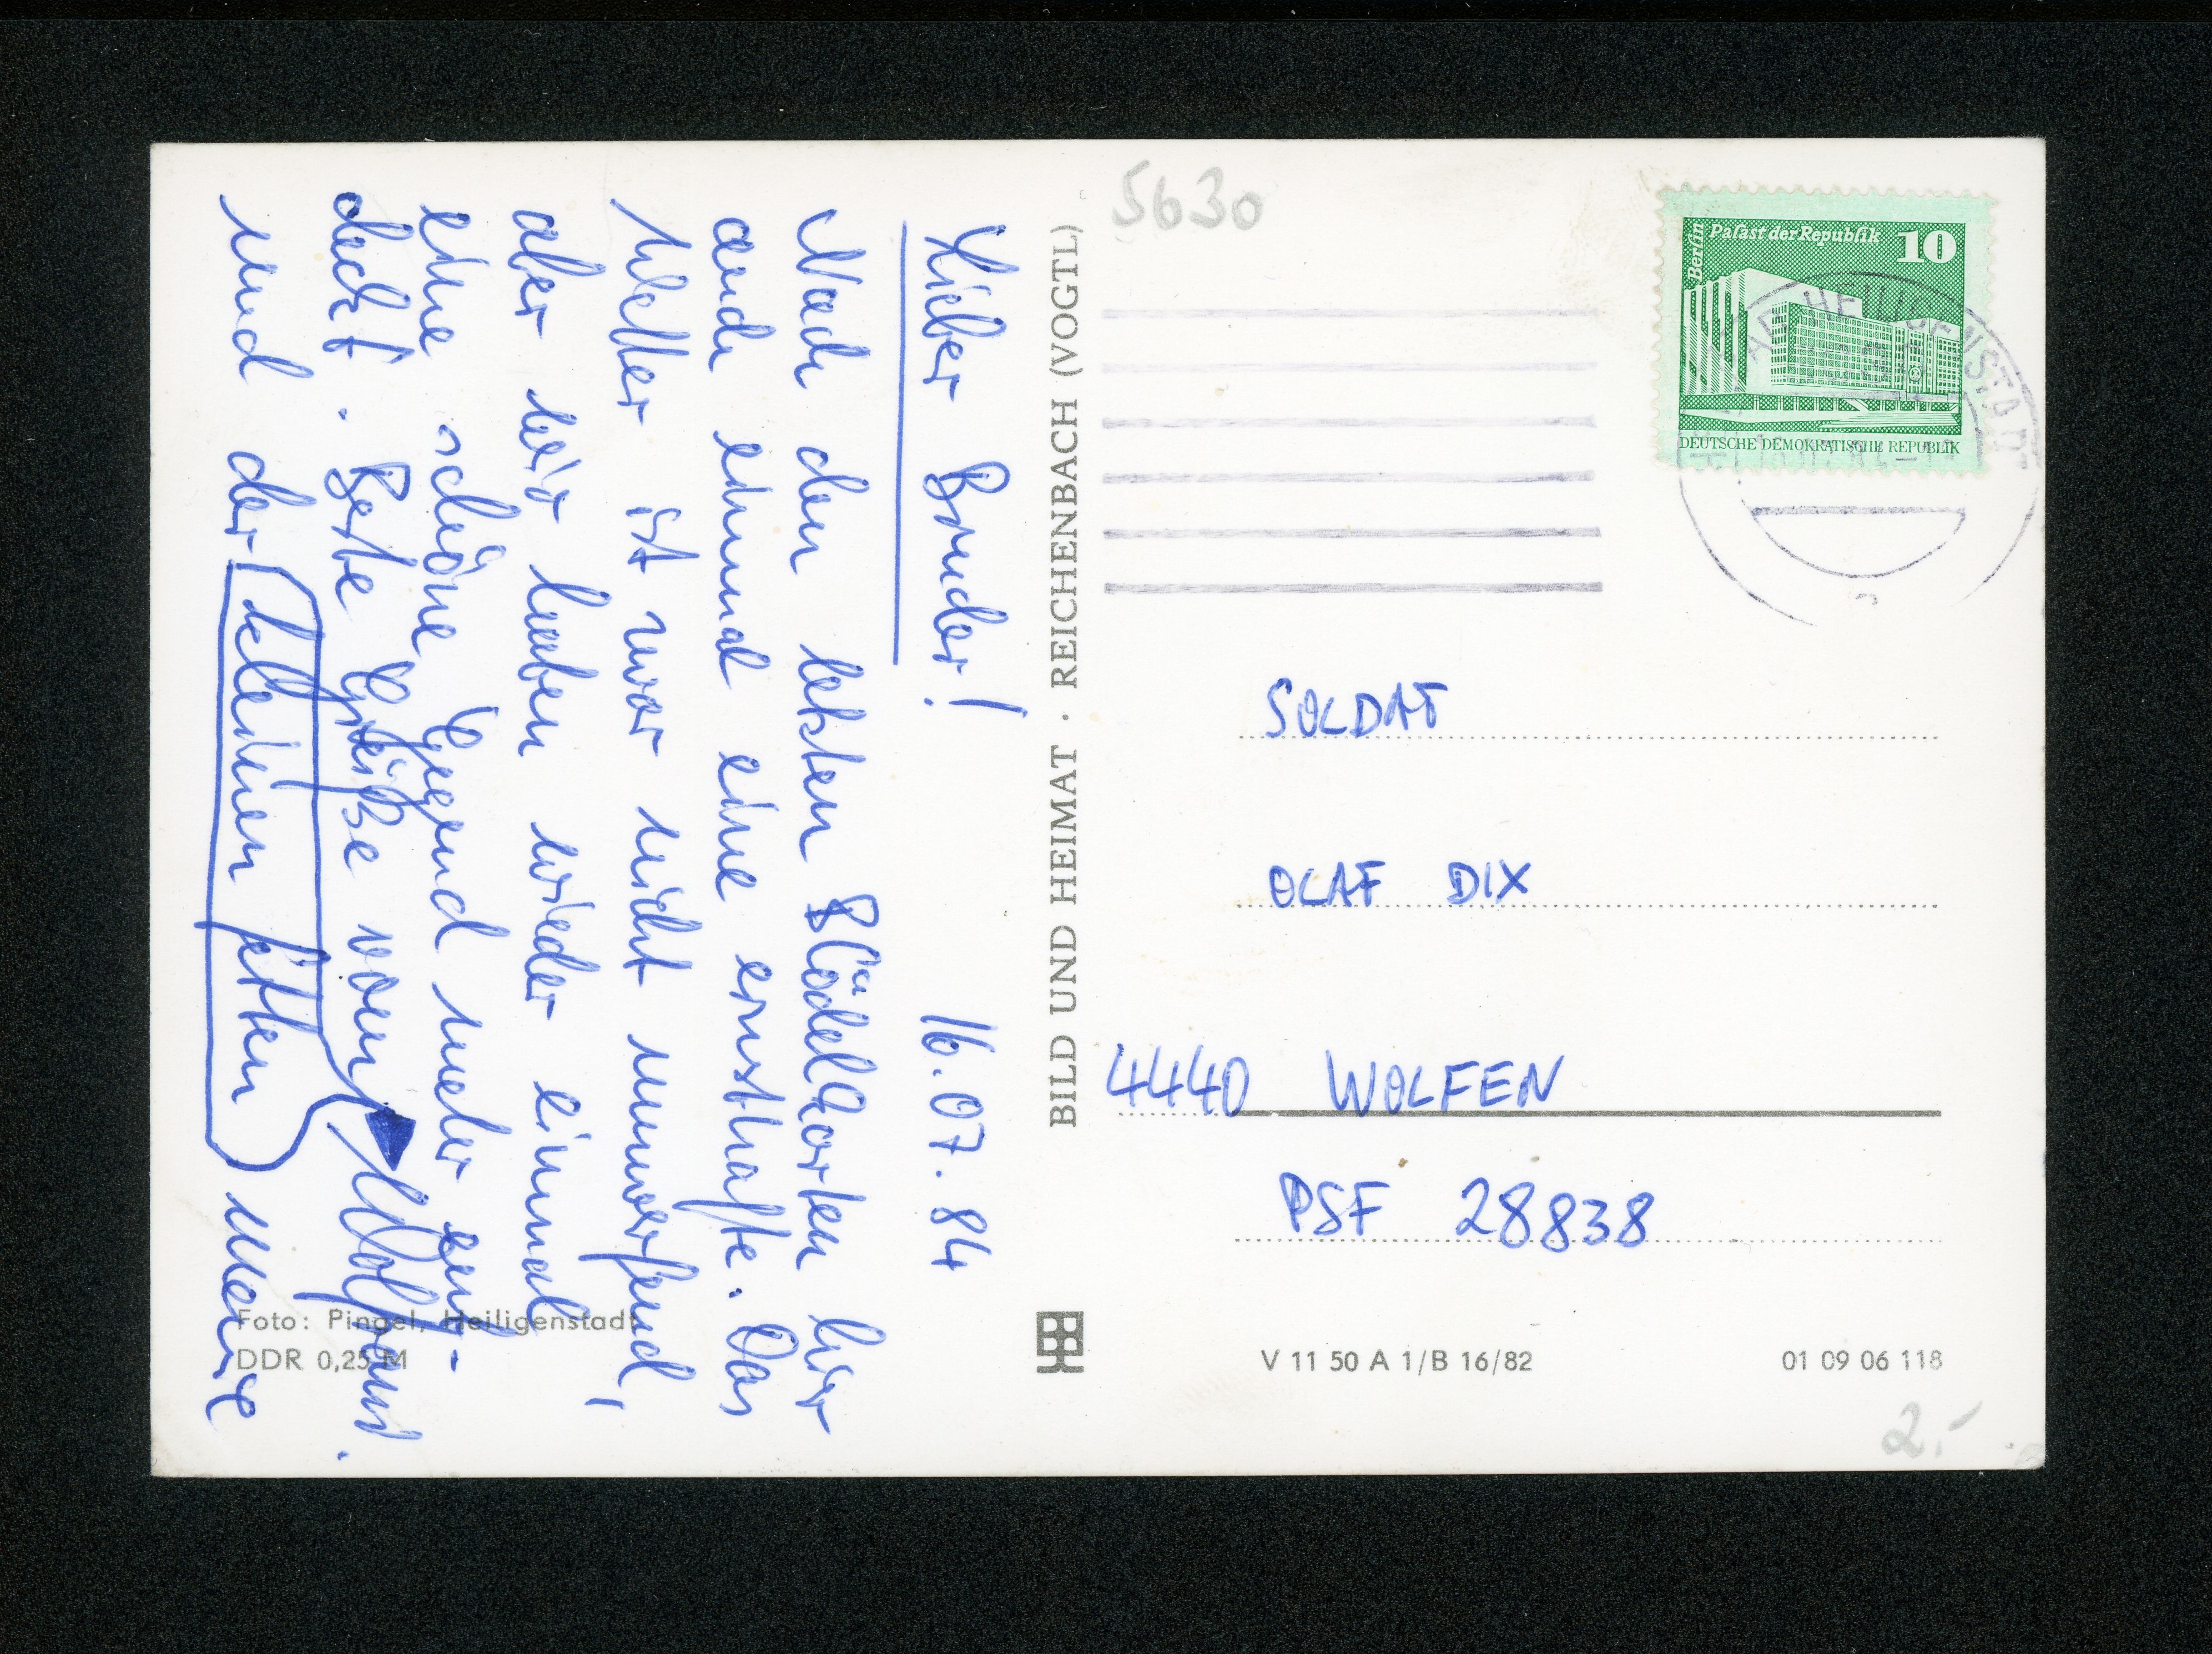 Lieber Bruder! 16.07.84
Nach den letzten Blödelkarten hier
auch einmal eine ernsthafte. Das
Wetter ist zwar nicht umwerfend,
aber wir haben wieder einmal
eine schöne Gegend mehr ent-
deckt. Beste Grüße vom Wolfram.
und der kleinen fetten Marie
Foto: Pingel, Heiligenstadt
DDR 0,25 M
BILD UND HEIMAT · REICHENBACH (VOGTL)
5630
Berlin
Palast der Republik 10
DEUTSCHE DEMOKRATISCHE REPUBLIK
HEILIGENSTADT
SOLDAT
OLAF DIX
4440 WOLFEN
PSF 28838
V 11 50 A 1/B 16/82 01 09 06 118
2.-